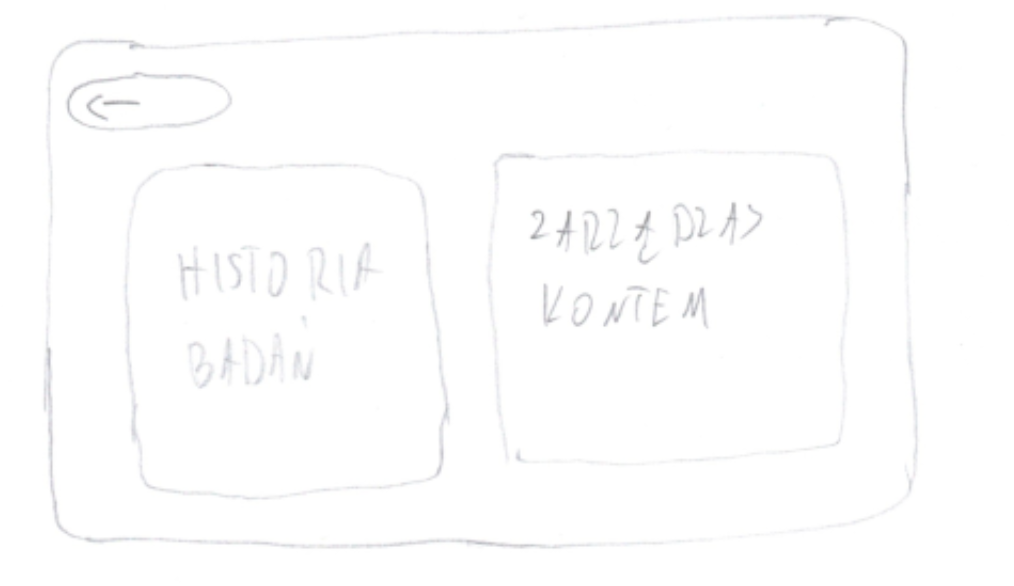 ←
HISTORIA
BADAŃ
ZARZĄDZAJ
KONTEM